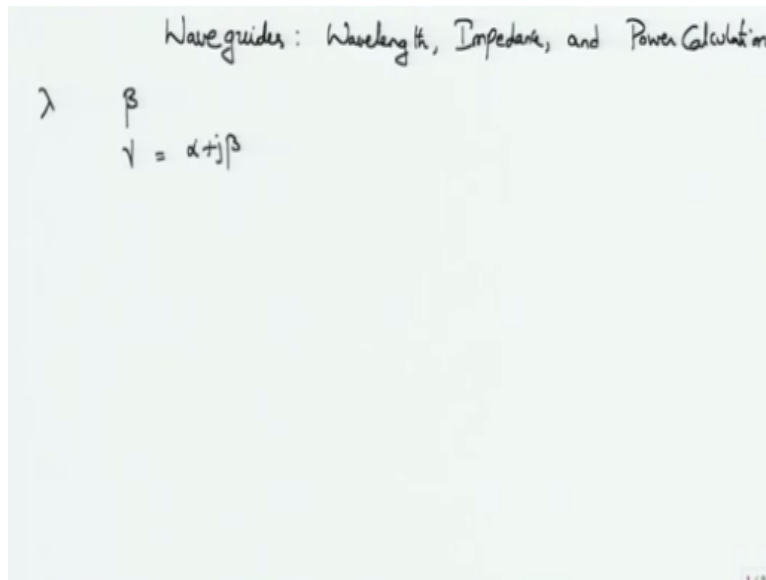 Waveguides: Wavelength, Impedance, and Power Calculation
λ β
γ = α+jβ